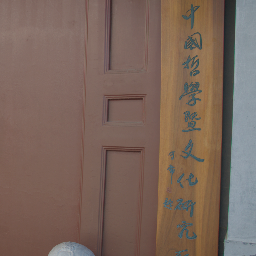 中国哲學暨文化研究